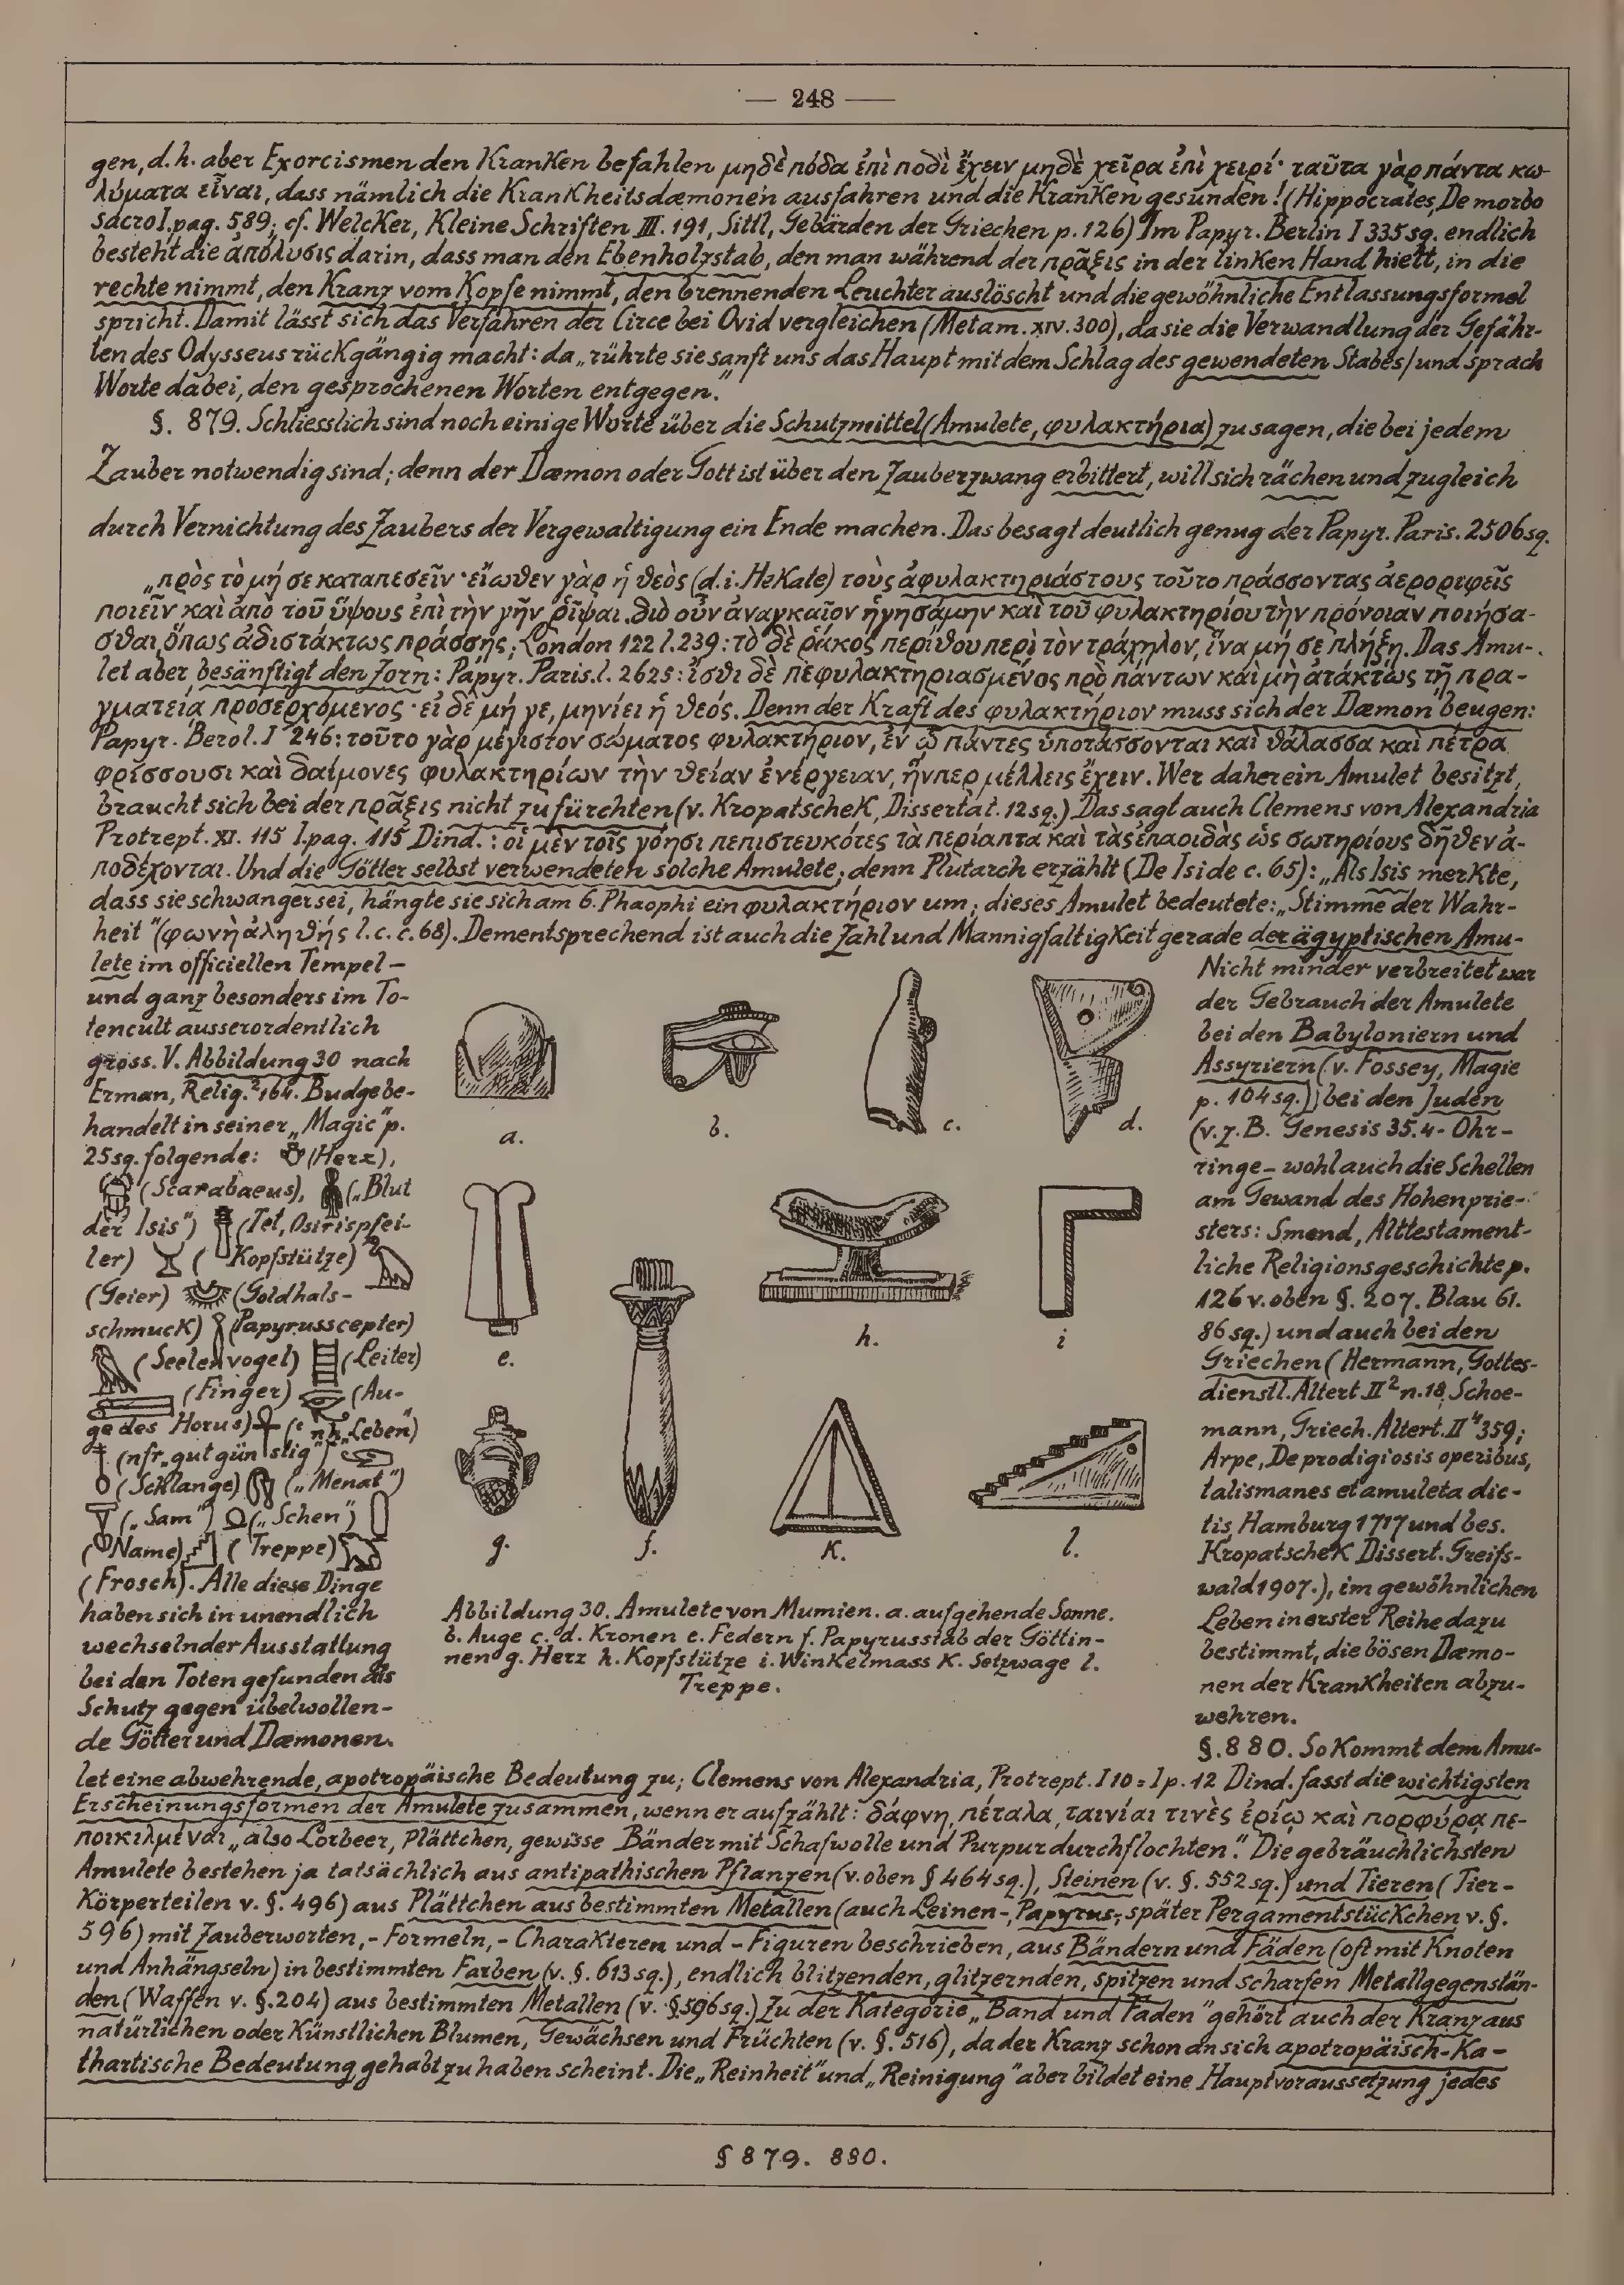 — 248 —
gen, d. h. aber Exorcismen den Kranken befahlen μηδὲ πόδα ἐπὶ ποδὶ ἔχειν μηδὲ χεῖρα ἐπὶ χειρί· ταῦτα γὰρ πάντα κω-
λύματα εἶναι, dass nämlich die Krankheitsdæmonen ausfahren und die Kranken gesunden! (Hippocrates, De morbo
sacro I. pag. 589; cf. Welcker, Kleine Schriften III. 191, Sittl, Gebärden der Griechen p. 126) Im Papyr. Berlin I 335 sq. endlich
besteht die ἀπόλυσις darin, dass man den Ebenholzstab, den man während der πρᾶξις in der linken Hand hielt, in die
rechte nimmt, den Kranz vom Kopfe nimmt, den brennenden Leuchter auslöscht und die gewöhnliche Entlassungsformel
spricht. Damit lässt sich das Verfahren der Circe bei Ovid vergleichen (Metam. XIV. 300), da sie die Verwandlung der Gefähr-
ten des Odysseus rückgängig macht: da „rührte sie sanft uns das Haupt mit dem Schlag des gewendeten Stabes / und sprach
Worte dabei, den gesprochenen Worten entgegen.“
§. 879. Schliesslich sind noch einige Worte über die Schutzmittel (Amulete, φυλακτήρια) zu sagen, die bei jedem
Zauber notwendig sind; denn der Dæmon oder Gott ist über den Zauberzwang erbittert, will sich rächen und zugleich
durch Vernichtung des Zaubers der Vergewaltigung ein Ende machen. Das besagt deutlich genug der Papyr. Paris. 2506 sq.
„πρὸς τὸ μή σε καταπεσεῖν· εἴωθεν γὰρ ἡ θεὸς (d. i. Hekate) τοὺς ἀφυλακτηριάστους τοῦτο πράσσοντας ἀεροριφεῖς
ποιεῖν καὶ ἀπὸ τοῦ ὕψους ἐπὶ τὴν γῆν ῥῖψαι. διὸ οὖν ἀναγκαῖον ἡγησάμην καὶ τοῦ φυλακτηρίου τὴν πρόνοιαν ποιήσα-
σθαι, ὅπως ἀδιστάκτως πράσσῃς; London 122 l. 239: τὸ δὲ ῥάκος περίθου περὶ τὸν τράχηλον, ἵνα μή σε πλήξῃ. Das Amu-
let aber besänftigt den Zorn: Papyr. Paris. l. 2625: ἴσθι δὲ πεφυλακτηριασμένος πρὸ πάντων καὶ μὴ ἀτάκτως τῇ πρα-
γματείᾳ προσερχόμενος· εἰ δὲ μή γε, μηνίει ἡ θεός. Denn der Kraft des φυλακτήριον muss sich der Dæmon beugen:
Papyr. Berol. I 246: τοῦτο γὰρ μέγιστον σώματος φυλακτήριον, ἐν ᾧ πάντες ὑποτάσσονται καὶ θάλασσα καὶ πέτρα
φρίσσουσι καὶ δαίμονες φυλακτηρίων τὴν θείαν ἐνέργειαν, ἥνπερ μέλλεις ἔχειν. Wer daher ein Amulet besitzt,
braucht sich bei der πρᾶξις nicht zu fürchten (v. Kropatschek, Dissertat. 12 sq.) Das sagt auch Clemens von Alexandria
Protrept. XI. 115 I. pag. 115 Dind.: οἱ μὲν τοῖς γόησι πεπιστευκότες τὰ περίαπτα καὶ τὰς ἐπαοιδὰς ὡς σωτηρίους δῆθεν ἀ-
ποδέχονται. Und die Götter selbst verwendeten solche Amulete; denn Plutarch erzählt (De Iside c. 65): „Als Isis merkte,
dass sie schwanger sei, hängte sie sich am 6. Phaophi ein φυλακτήριον um; dieses Amulet bedeutete: „Stimme der Wahr-
heit“ (φωνὴ ἀληθής l. c. c. 68). Dementsprechend ist auch die Zahl und Mannigfaltigkeit gerade der ägyptischen Amu-
lete im officiellen Tempel–
und ganz besonders im To-
tencult ausserordentlich
gross. V. Abbildung 30 nach
Erman, Relig.² 164. Budge be-
handelt in seiner „Magic“ p.
25 sq. folgende: (Herz),
(Scarabaeus), („Blut
der Isis“) (Tet, Osirispfei-
ler) ( Kopfstütze)
(Geier) (Goldhals-
schmuck) (Papyrusscepter)
(Seelenvogel) (Leiter)
(Finger) (Au-
ge des Horus) (ʿnḫ „Leben“)
(nfr „gut günstig“)
(Schlange) („Menat“)
(„Sam“) („Schen“)
(Name) (Treppe)
(Frosch). Alle diese Dinge
haben sich in unendlich
wechselnder Ausstattung
bei den Toten gefunden als
Schutz gegen übelwollen-
de Götter und Dæmonen.
a.
b.
c.
d.
e.
h.
i
g.
f.
K.
l.
Abbildung 30. Amulete von Mumien. a. aufgehende Sonne.
b. Auge c. d. Kronen e. Federn f. Papyrusstab der Göttin-
nen g. Herz h. Kopfstütze i. Winkelmass K. Setzwage l.
Treppe.
Nicht minder verbreitet war
der Gebrauch der Amulete
bei den Babyloniern und
Assyriern (v. Fossey, Magie
p. 104 sq.)) bei den Juden
(v. z. B. Genesis 35.4 - Ohr-
ringe – wohl auch die Schellen
am Gewand des Hohenprie-
sters: Smend, Alttestament-
liche Religionsgeschichte p.
126 v. oben §. 207. Blau 61.
86 sq.) und auch bei den
Griechen (Hermann, Gottes-
dienstl. Altert. II² n. 18, Schoe-
mann, Griech. Altert. II⁴ 359;
Arpe, De prodigiosis operibus,
talismanes et amuleta dic-
tis, Hamburg 1717 und bes.
Kropatschek Dissert. Greifs-
wald 1907.), im gewöhnlichen
Leben in erster Reihe dazu
bestimmt, die bösen Dæmo-
nen der Krankheiten abzu-
wehren.
§. 880. So kommt dem Amu-
let eine abwehrende, apotropäische Bedeutung zu; Clemens von Alexandria, Protrept. I 10 = I p. 12 Dind. fasst die wichtigsten
Erscheinungsformen der Amulete zusammen, wenn er aufzählt: δάφνη, πέταλα, ταινίαι τινὲς ἐρίῳ καὶ πορφύρᾳ πε-
ποικιλμέναι „also Lorbeer, Plättchen, gewisse Bänder mit Schafwolle und Purpur durchflochten“. Die gebräuchlichsten
Amulete bestehen ja tatsächlich aus antipathischen Pflanzen (v. oben § 464 sq.), Steinen (v. §. 552 sq.) und Tieren (Tier-
Körperteilen v. §. 496) aus Plättchen aus bestimmten Metallen (auch Leinen-, Papyrus-, später Pergamentstückchen v. §.
596) mit Zauberworten, - Formeln, - Charakteren und - Figuren beschrieben, aus Bändern und Fäden (oft mit Knoten
und Anhängseln) in bestimmten Farben (v. §. 613 sq.), endlich blitzenden, glitzernden, spitzen und scharfen Metallgegenstän-
den (Waffen v. §. 204) aus bestimmten Metallen (v. §. 596 sq.) Zu der Kategorie „Band und Faden“ gehört auch der Kranz aus
natürlichen oder künstlichen Blumen, Gewächsen und Früchten (v. §. 516), da der Kranz schon an sich apotropäisch-Ka-
thartische Bedeutung gehabt zu haben scheint. Die „Reinheit“ und „Reinigung“ aber bildet eine Hauptvoraussetzung jedes
§ 879. 880.